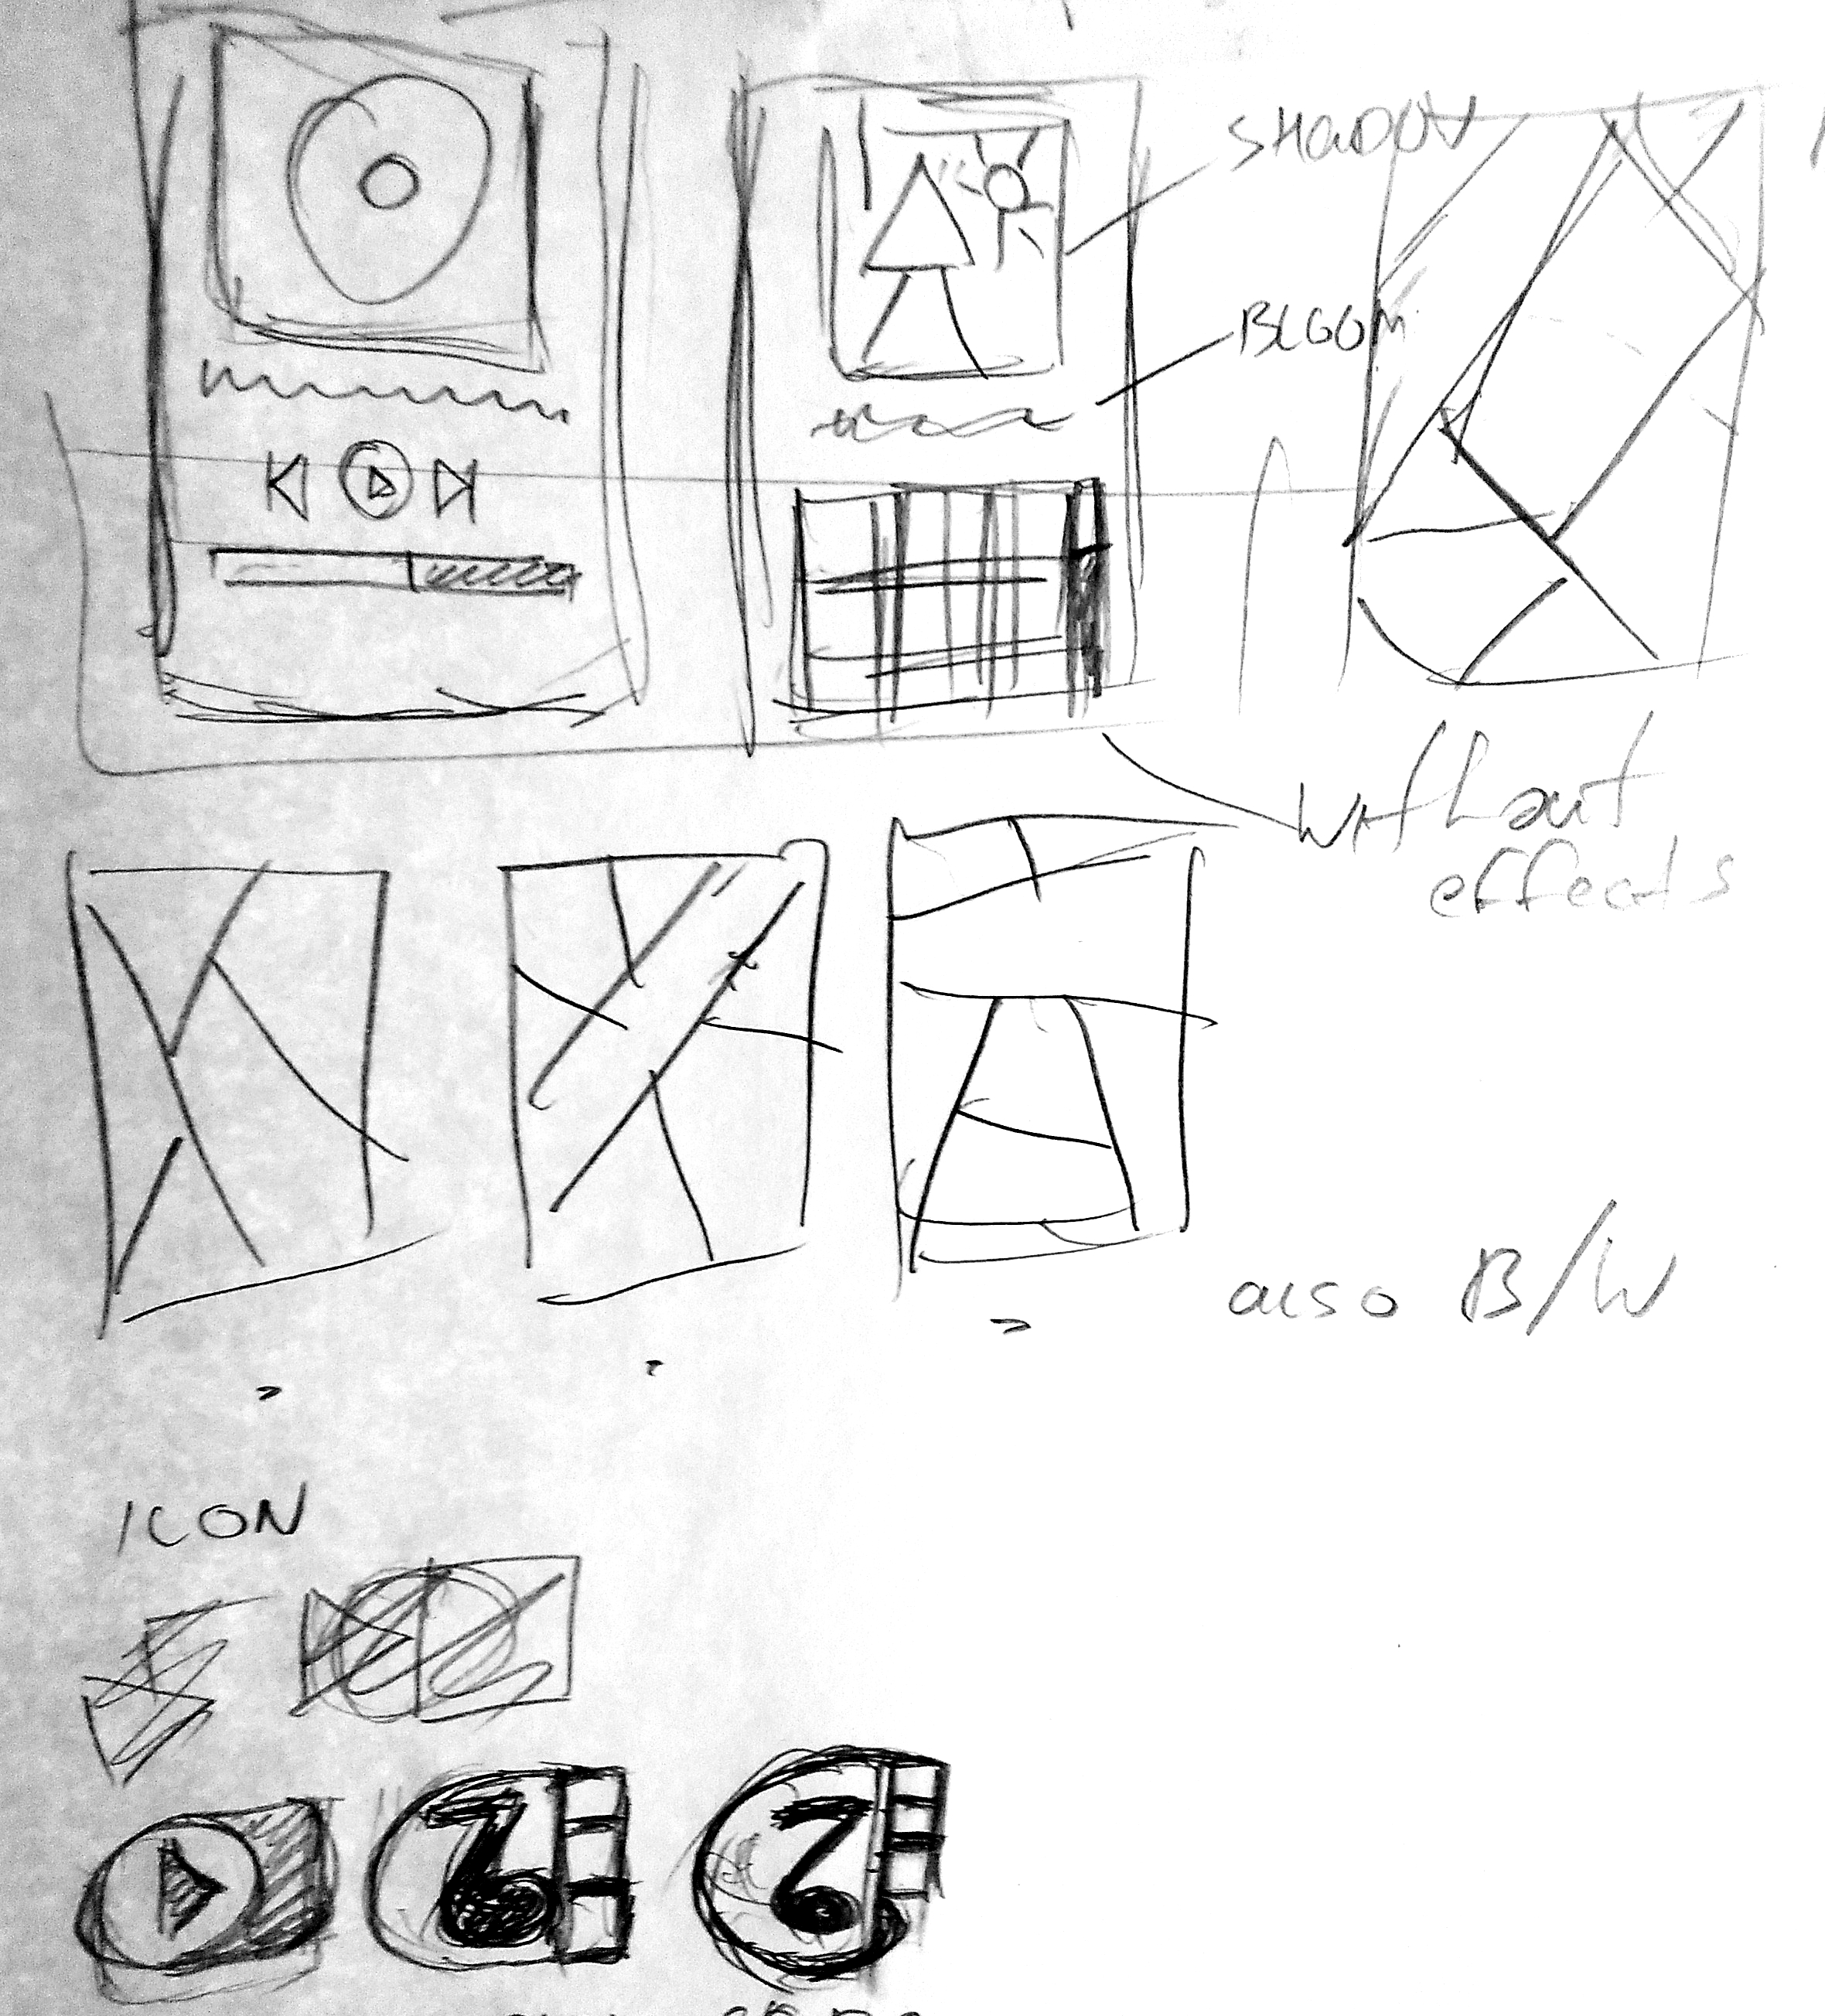 SHADOW
BLOOM
without
effects
also B/W
ICON